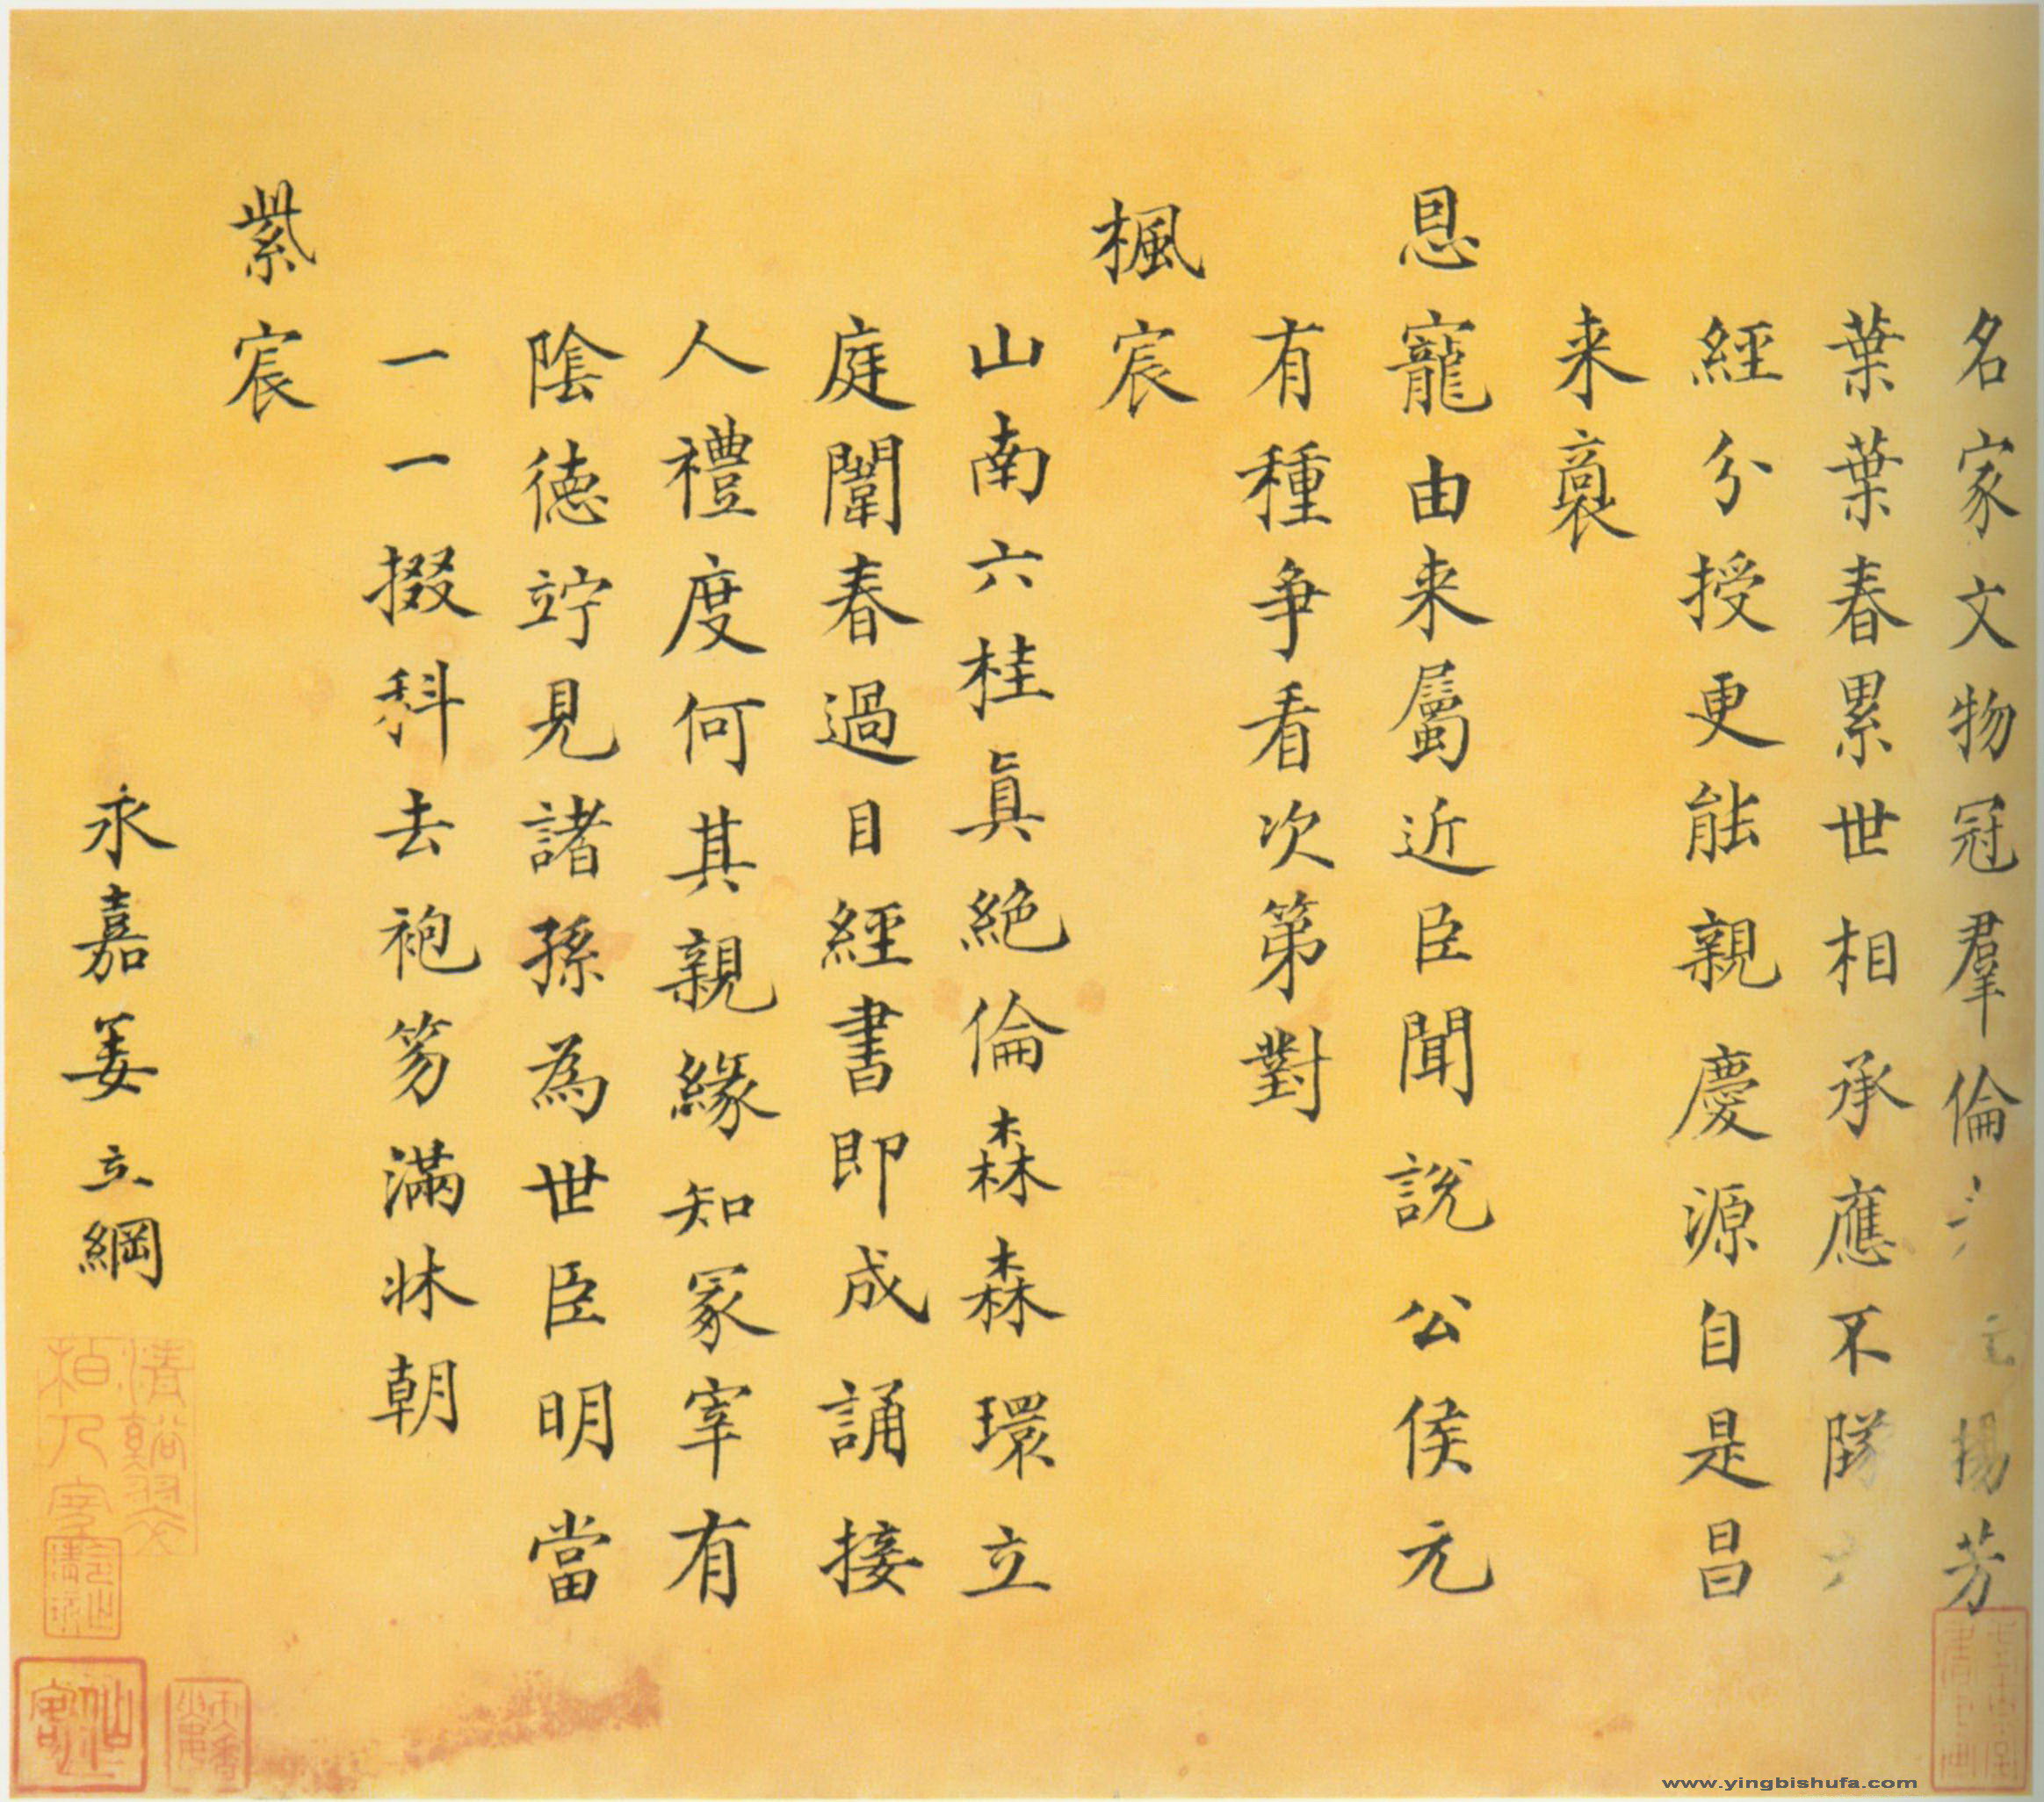 名家文物冠羣倫揚芳
葉葉春累世相承應不墜
經分授更能親慶源自是昌
来裔
恩寵由来屬近臣聞說公侯元
有種争看次第對
楓宸
山南六桂真絶倫森森環立
庭闈春過目經書即成誦接
人禮度何其親緣知冢宰有
陰德竚見諸孫為世臣明當
一一掇科去袍笏滿牀朝
紫宸
永嘉姜立綱
www.yingbishufa.com